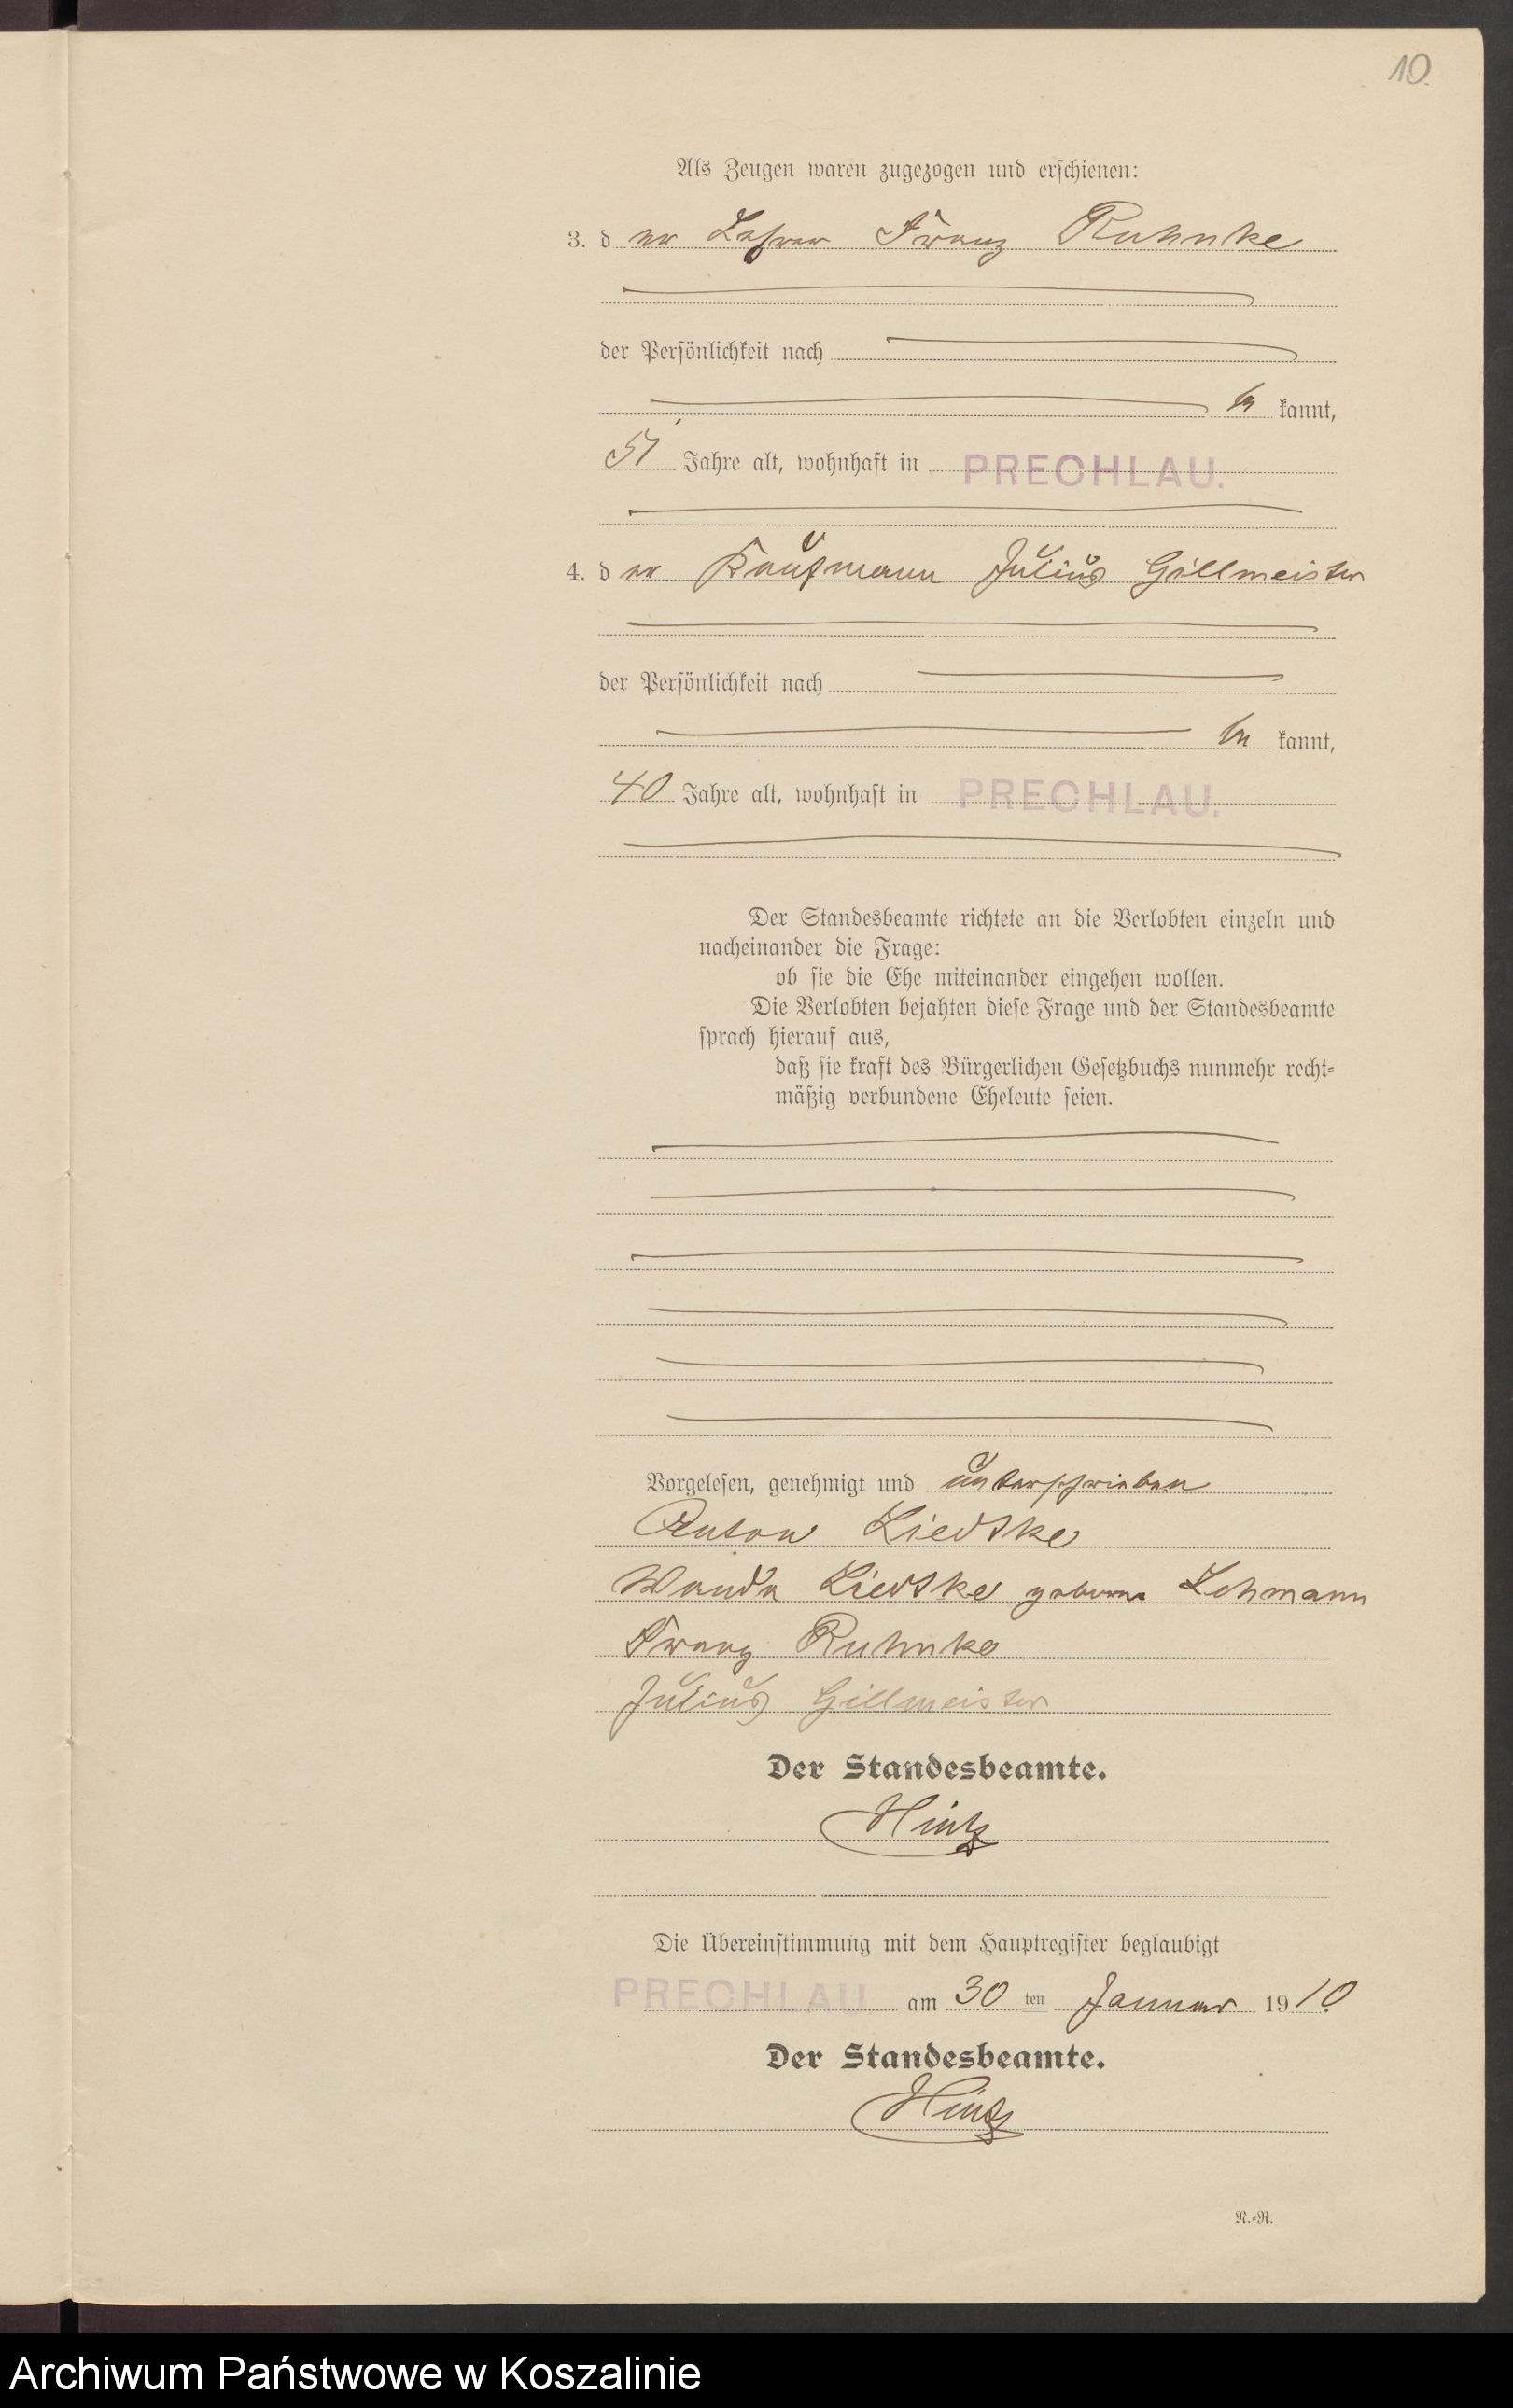 10.
Als Zeugen waren zugezogen und erschienen:
3. der Lehrer Franz Ruhnke
der Persönlichkeit nach
be kannt,
51 Jahre alt, wohnhaft in PRECHLAU.
4. der Kaufmann Julius Gillmeister
der Persönlichkeit nach
be kannt,
40 Jahre alt, wohnhaft in PRECHLAU.
Der Standesbeamte richtete an die Verlobten einzeln und
nacheinander die Frage:
ob sie die Ehe miteinander eingehen wollen.
Die Verlobten bejahten diese Frage und der Standesbeamte
sprach hierauf aus,
daß sie kraft des Bürgerlichen Gesetzbuchs nunmehr recht-
mäßig verbundene Eheleute seien.
Vorgelesen, genehmigt und unterschrieben
Anton Liedtke
Wanda Liedtke geborene Lehmann
Franz Ruhnke
Julius Gillmeister
Der Standesbeamte.
Hintz
Die Übereinstimmung mit dem Hauptregister beglaubigt
PRECHLAU am 30 ten Januar 1910.
Der Standesbeamte.
Hintz
N.-R.
Archiwum Państwowe w Koszalinie